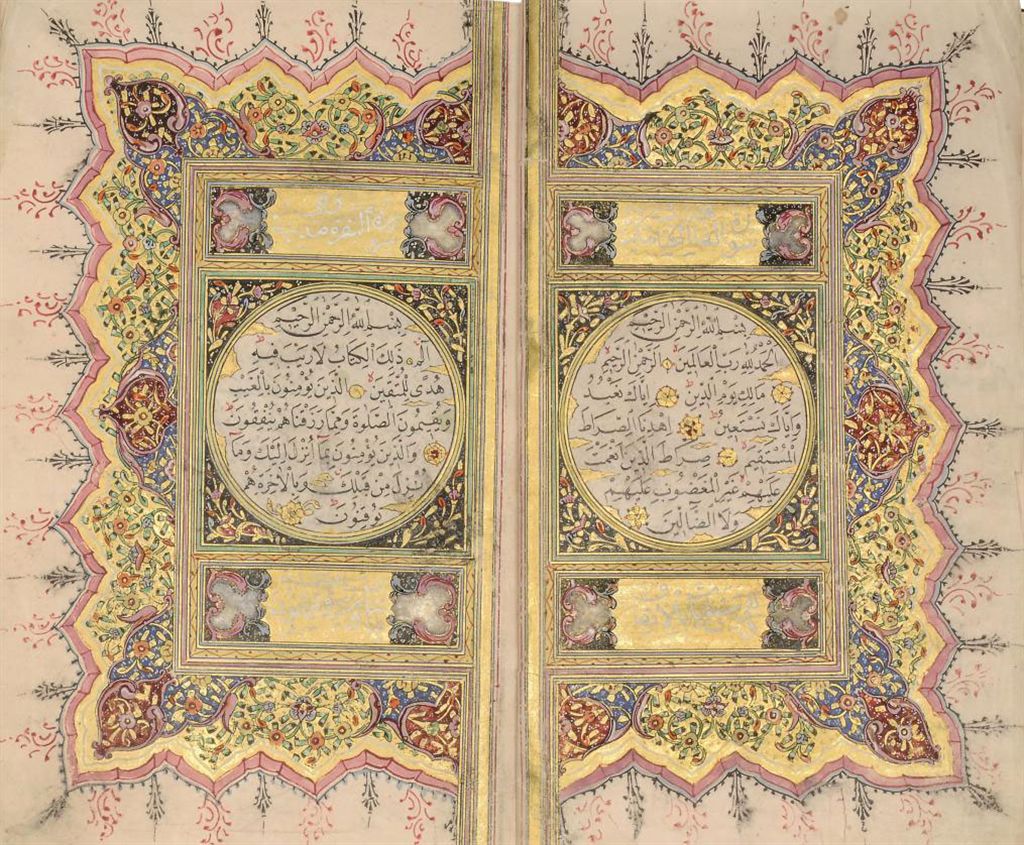 سورة
بِسْمِ اللّٰهِ الرَّحْمٰنِ الرَّحِيمِ
اَلْحَمْدُ لِلّٰهِ رَبِّ الْعَالَمِينَ الرَّحْمٰنِ الرَّحِيمِ
مَالِكِ يَوْمِ الدِّينِ اِيَّاكَ نَعْبُدُ
وَاِيَّاكَ نَسْتَعِينُ اِهْدِنَا الصِّرَاطَ
الْمُسْتَقِيمَ صِرَاطَ الَّذِينَ اَنْعَمْتَ
عَلَيْهِمْ غَيْرِ الْمَغْضُوبِ عَلَيْهِمْ
وَلَا الضَّالِّينَ
سورة البقرة
بِسْمِ اللّٰهِ الرَّحْمٰنِ الرَّحِيمِ
الٓمٓ ذٰلِكَ الْكِتَابُ لَا رَيْبَ فِيهِ
هُدًى لِلْمُتَّقِينَ اَلَّذِينَ يُؤْمِنُونَ بِالْغَيْبِ
وَيُقِيمُونَ الصَّلٰوةَ وَمِمَّا رَزَقْنَاهُمْ يُنْفِقُونَ
وَالَّذِينَ يُؤْمِنُونَ بِمَا اُنْزِلَ اِلَيْكَ وَمَا
اُنْزِلَ مِنْ قَبْلِكَ وَبِالْاٰخِرَةِ هُمْ
يُوقِنُونَ